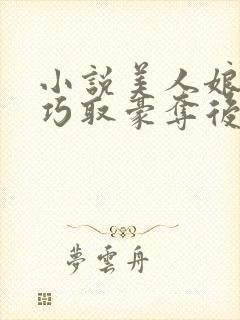 小說美人娘
巧取豪奪後
夢雲舟